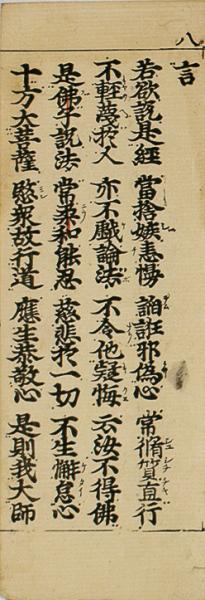 八
言
若欲説是經 當捨嫉恚慢 諂誑邪偽心 常脩質直行
不輕蔑於人 亦不戲論法 不令他疑悔 云汝不得佛
是佛子説法 常柔和能忍 慈悲於一切 不生懈怠心
十方大菩薩 愍衆故行道 應生恭敬心 是則我大師